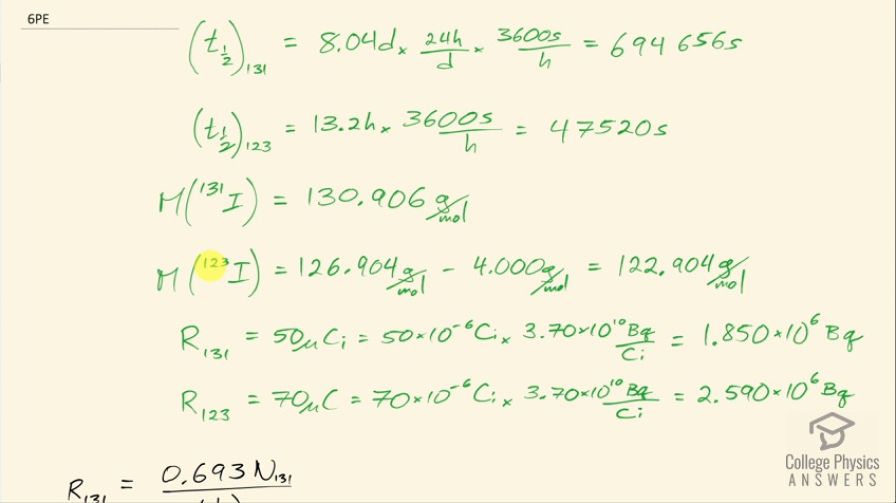 6PE
(t½)131 = 8.04d × 24h/d × 3600s/h = 694 656s
(t½)123 = 13.2h × 3600s/h = 47520s
M(¹³¹I) = 130.906 g/mol
M(¹²³I) = 126.904 g/mol - 4.000 g/mol = 122.904 g/mol
R131 = 50μCi = 50×10⁻⁶ Ci × 3.70×10¹⁰ Bq/Ci = 1.850×10⁶ Bq
R123 = 70μC = 70×10⁻⁶ Ci × 3.70×10¹⁰ Bq/Ci = 2.590×10⁶ Bq
R131 = 0.693 N131
College Physics
ANSWERS